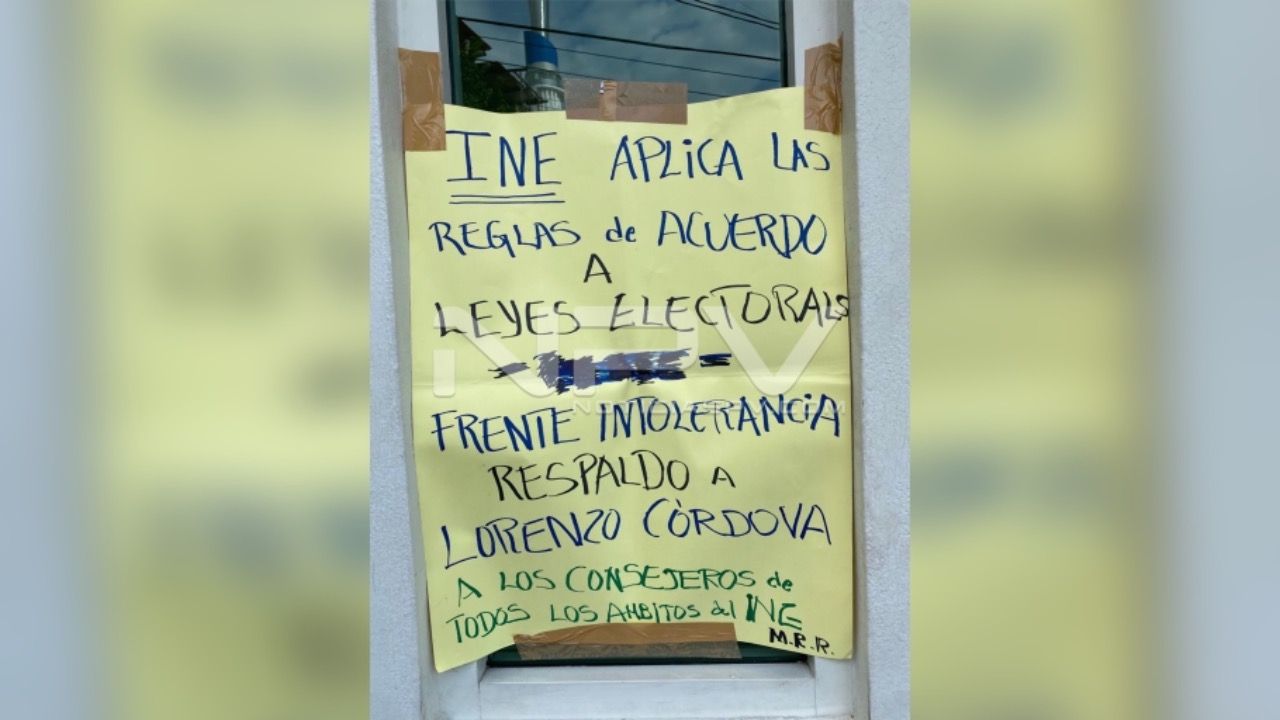 INE APLiCA LAS
REGLAS de ACUERDO
A
LEYES ELECTORALS
FRENTE INTOLERANCiA
RESPALDO A
LORENZO CÒRDOVA
A LOS CONSEJEROS de
TODOS LOS AMBITOS del INE
M.R.R.
NPV